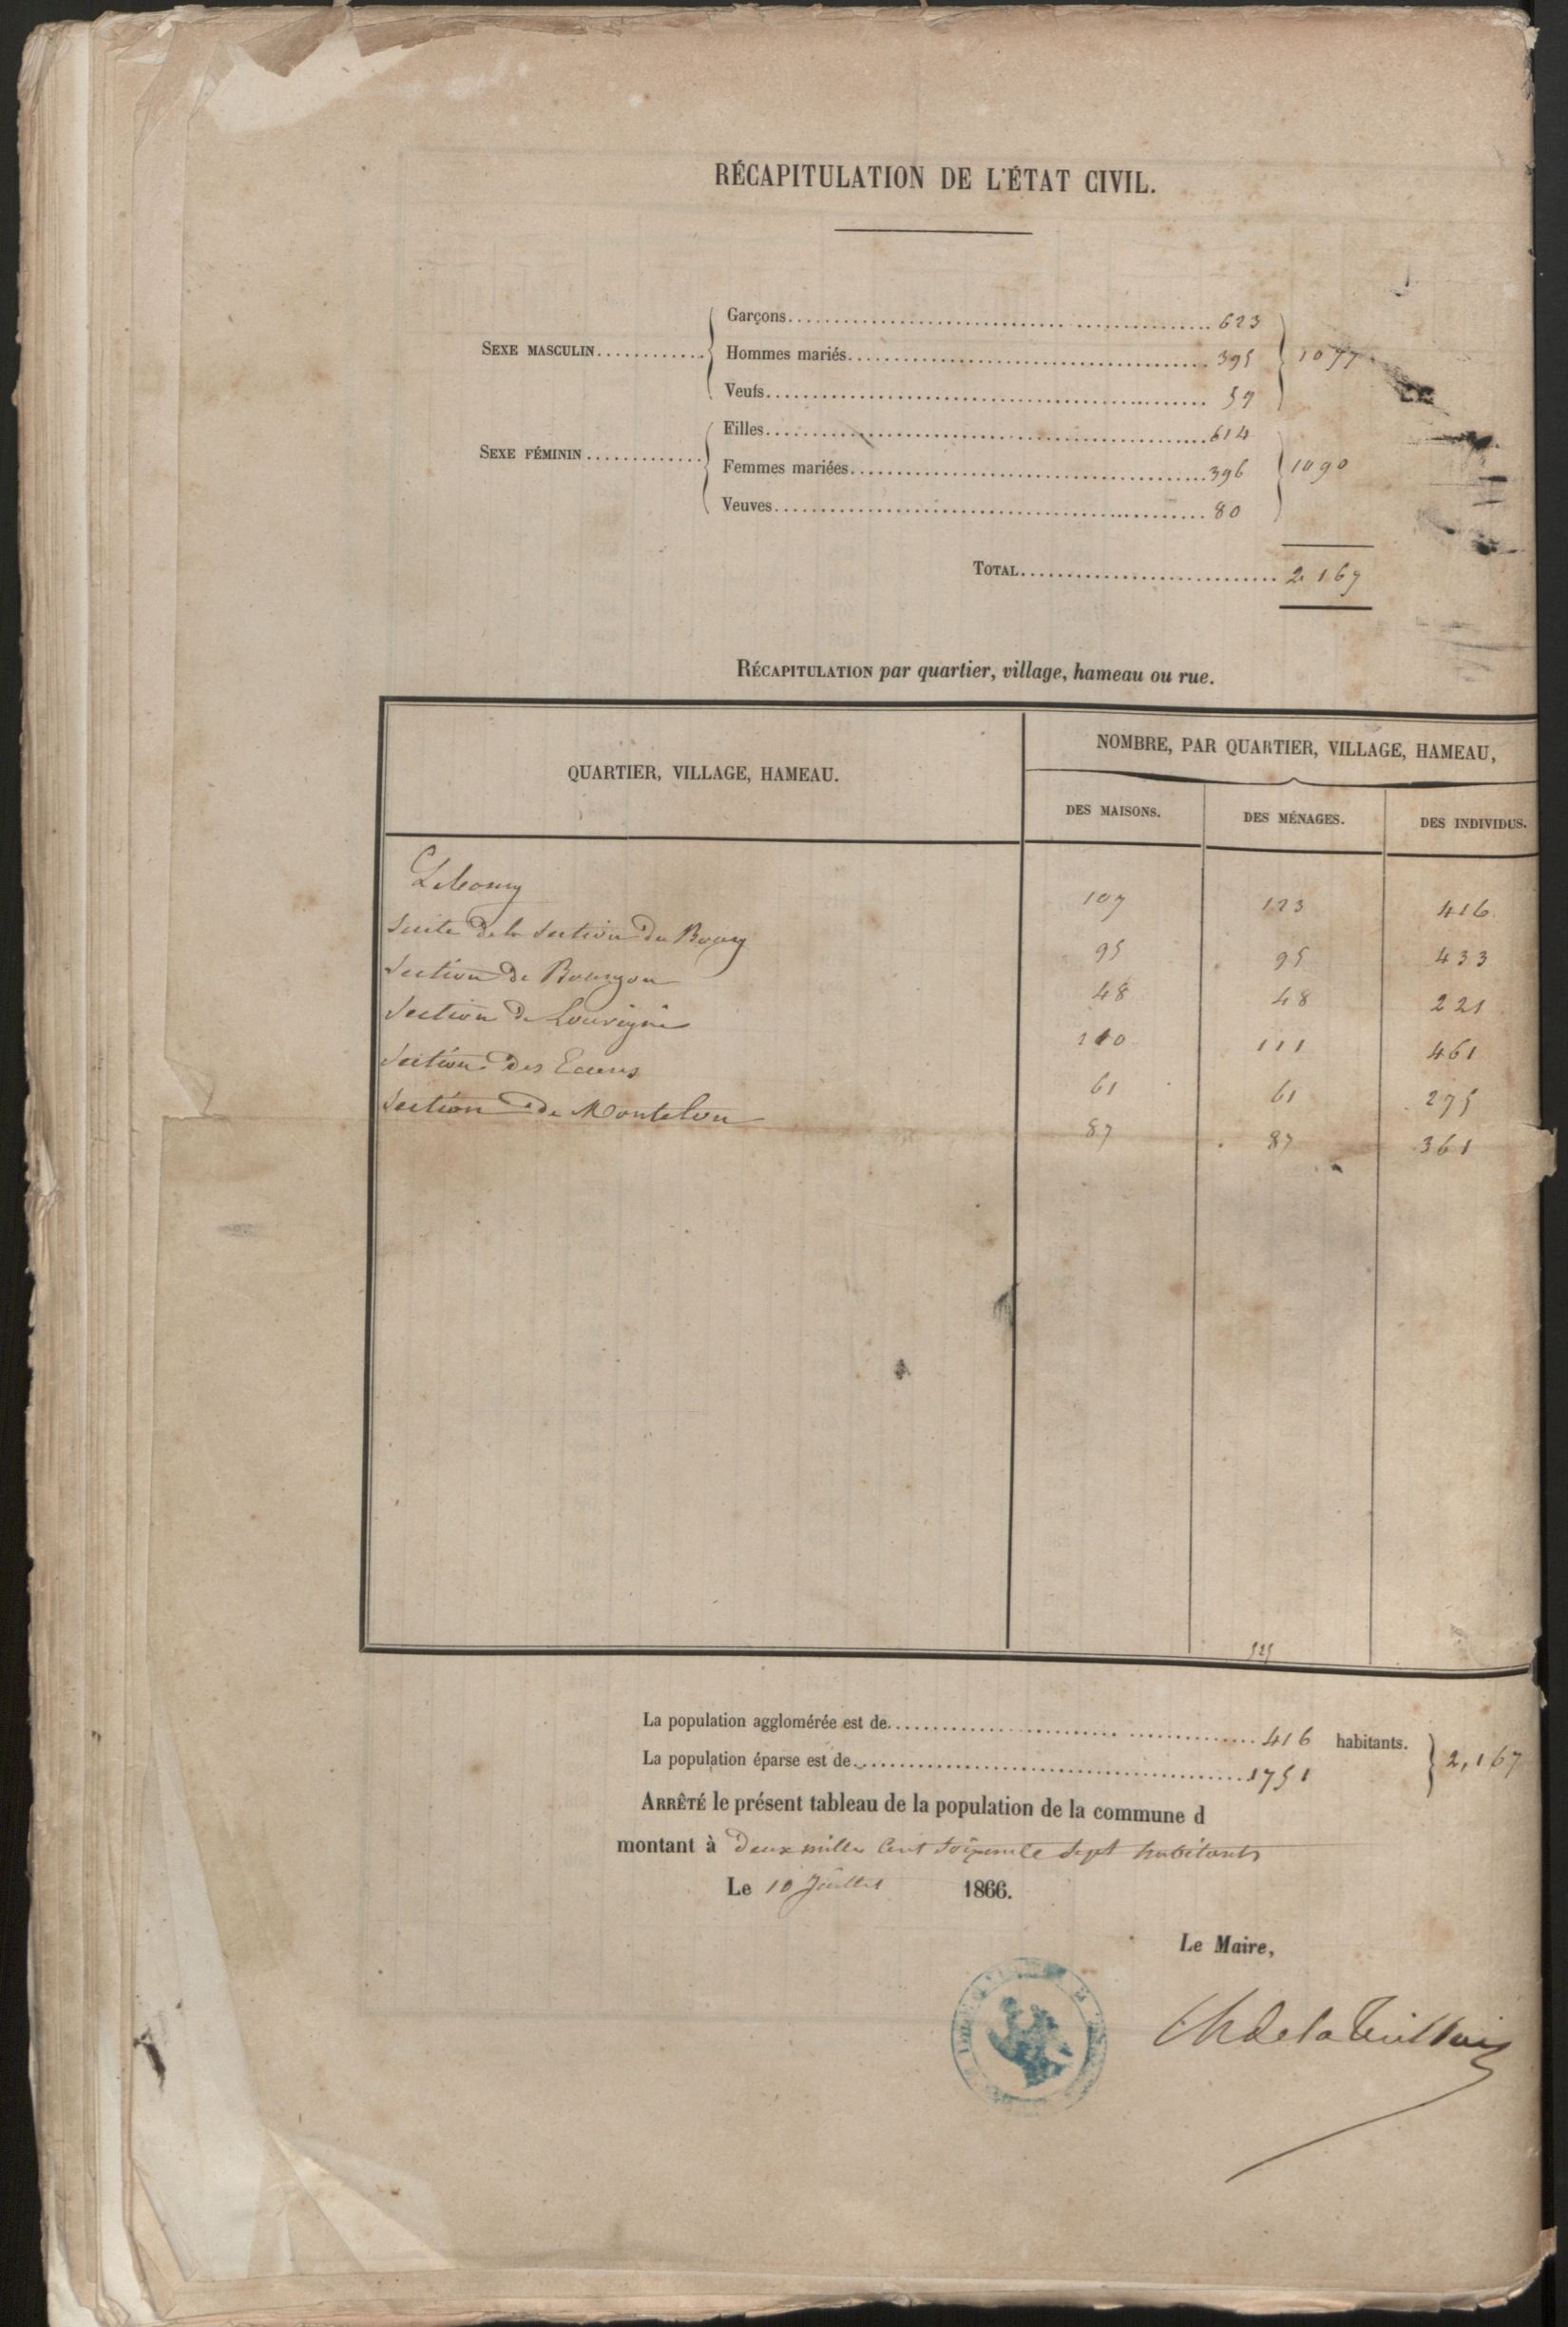 RÉCAPITULATION DE L'ÉTAT CIVIL.
SEXE MASCULIN
Garçons 623
Hommes mariés 395
Veufs 59
1077
SEXE FÉMININ
Filles 614
Femmes mariées 396
Veuves 80
1090
TOTAL 2167
RÉCAPITULATION par quartier, village, hameau ou rue.
QUARTIER, VILLAGE, HAMEAU.
NOMBRE, PAR QUARTIER, VILLAGE, HAMEAU,
DES MAISONS. DES MÉNAGES. DES INDIVIDUS.
Le bourg 107 123 416
Suite de la Section du Bourg 95 95 433
Section de Bourgon 48 48 221
Section de Louvigné 110 111 461
Section des 61 61 275
Section de 87 87 361
525
La population agglomérée est de 416 habitants.
La population éparse est de 1751
2,167
ARRÊTÉ le présent tableau de la population de la commune d
montant à Deux mille Cent Soixante Sept habitants
Le 10 Juillet 1866.
Le Maire,